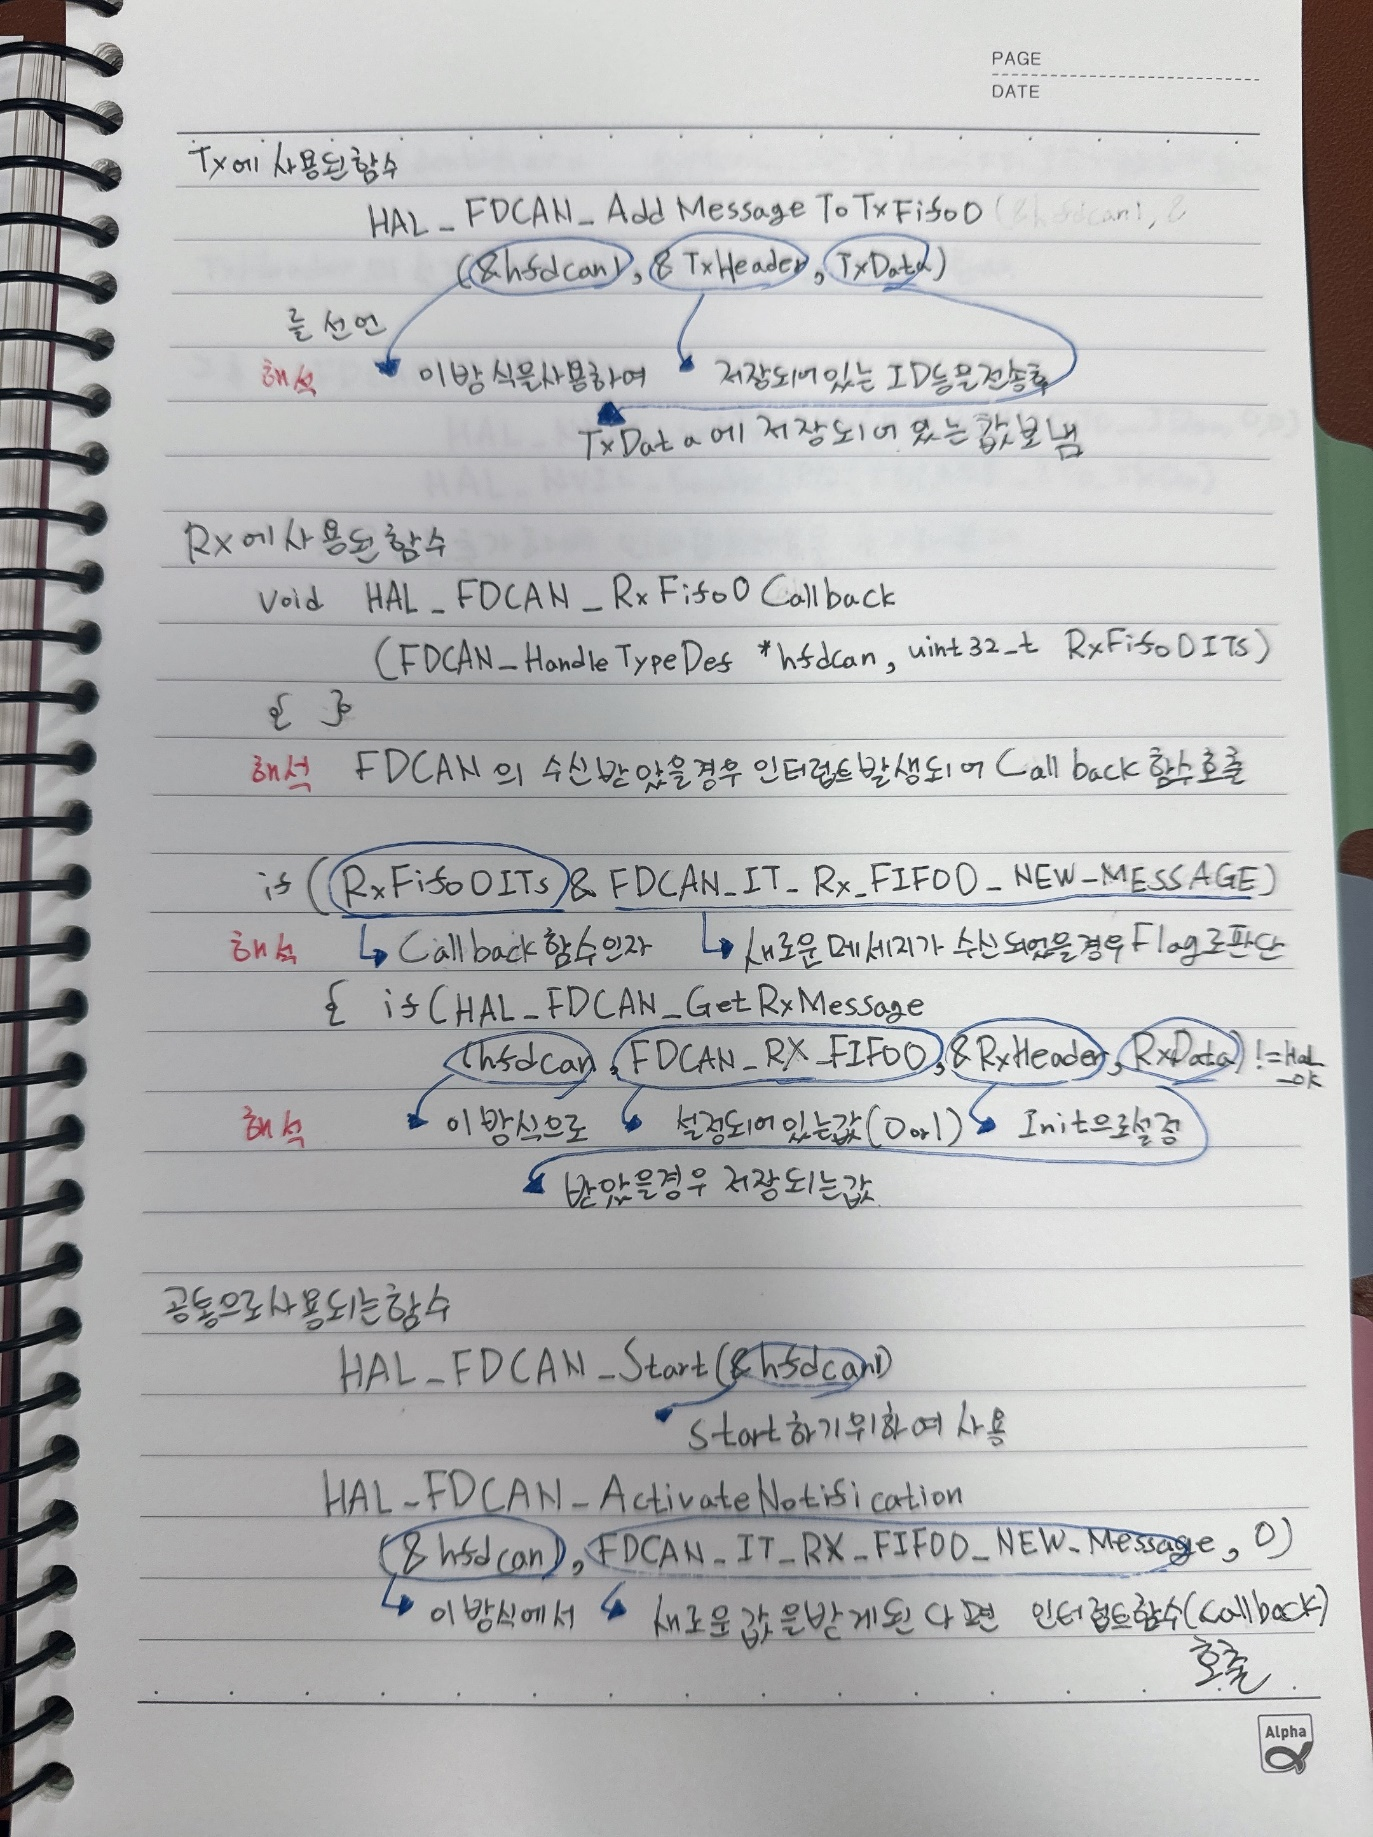 PAGE
DATE
Tx에 사용된 함수
HAL_FDCAN_AddMessageToTxFifo0
(&hfdcan1, &TxHeader, TxData)
를 선언
해석 이 방식을 사용하여 저장되어 있는 ID등을 전송후
TxData에 저장되어 있는 값 보냄
Rx에 사용된 함수
void HAL_FDCAN_RxFifo0Callback
(FDCAN_HandleTypeDef *hfdcan, uint32_t RxFifo0ITs)
{ }
해석 FDCAN의 수신받았을경우 인터럽트발생되어 Callback함수호출
if (RxFifo0ITs & FDCAN_IT_Rx_FIFO0_NEW_MESSAGE)
해석 Callback함수인자 새로운 메세지가 수신되었을경우 Flag로판단
{ if(HAL_FDCAN_GetRxMessage
(hfdcan, FDCAN_RX_FIFO0, &RxHeader, RxData) != HAL_OK
해석 이 방식으로 설정되어있는값(0 or 1) Init으로설정
받았을경우 저장되는값
공통으로사용되는함수
HAL_FDCAN_Start(&hfdcan1)
Start하기위하여 사용
HAL_FDCAN_ActivateNotification
(&hfdcan1, FDCAN_IT_RX_FIFO0_NEW_Message, 0)
이 방식에서 새로운값을받게된다면 인터럽트함수(Callback)
호출
Alpha